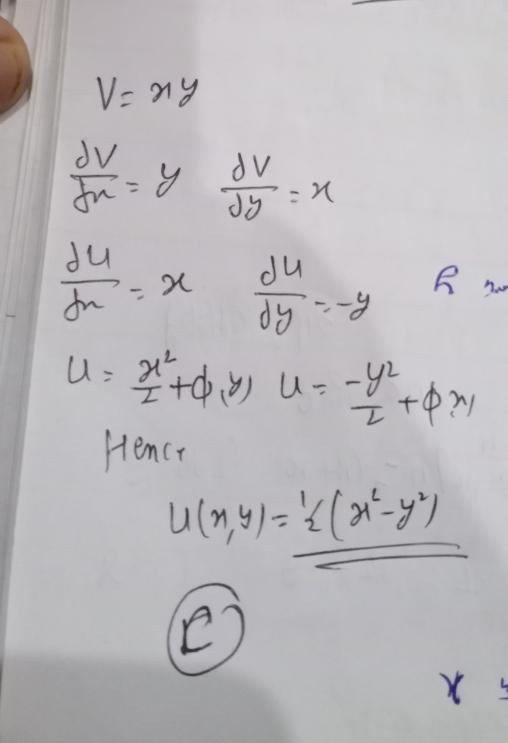 V = xy
∂V/∂x = y ∂V/∂y = x
∂u/∂x = x ∂u/∂y = -y
u = x²/2 + φ(y) u = -y²/2 + φ(x)
Hence
u(x,y) = ½(x² - y²)
C